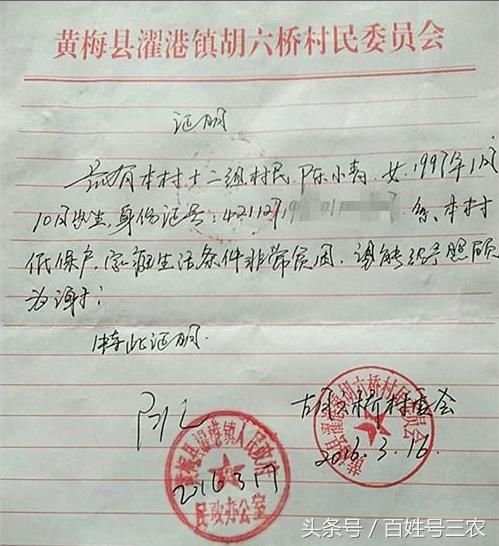 黄梅县濯港镇胡六桥村民委员会
证明
兹有本村十二组村民 陈小青 女 1997年1月
10日出生,身份证号:42112719 01 7 系本村
低保户,家庭生活条件非常贫困,望能给予照顾
为谢!
特此证明
同意
胡六桥村委会
2016.3.16
2016.3.17
黄梅县濯港镇人民政府
民政办公室
黄梅县濯港镇胡六桥村民委员会
头条号/百姓号三农